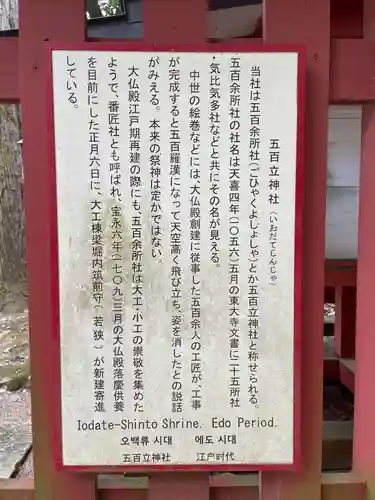 五百立神社（いおだてじんじゃ）
当社は五百余所社（ごひゃくよしょしゃ）とか五百立神社と称せられる。
五百余所社の社名は天喜四年（一〇五六）五月の東大寺文書に「十五所社
・気比気多社などと共にその名が見える。
中世の絵巻などには、大仏殿創建に従事した五百余人の工匠が、工事
が完成すると五百羅漢になって天空高く飛び立ち、姿を消したとの説話
がみえる。本来の祭神は定かではない。
大仏殿江戸期再建の際にも、五百余所社は大工・小工の崇敬を集めた
ようで、番匠社とも呼ばれ、宝永六年（一七〇九）三月の大仏殿落慶供養
を目前にした正月六日に、大工棟梁堀内筑前守（若狭）が新建寄進
している。
Iodate-Shinto Shrine. Edo Period.
오백류 시대 에도 시대
五百立神社 江户时代